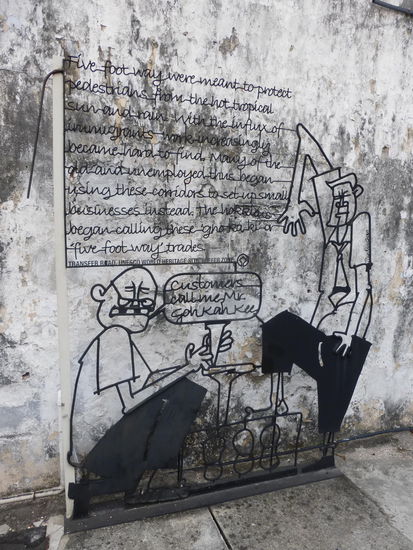 Five foot way were meant to protect
pedestrians from the hot tropical
sun and rain. With the influx of
immigrants work increasingly
became hard to find. Many of the
old and unemployed thus began
using these corridors to set up small
businesses instead. The hokkiens
began calling these 'gho ka ki' or
"five foot way" trades.
TRANSFER ROAD, UNESCO WORLD HERITAGE BUFFER ZONE
Customers
call me Mr.
Goh Kah Kee